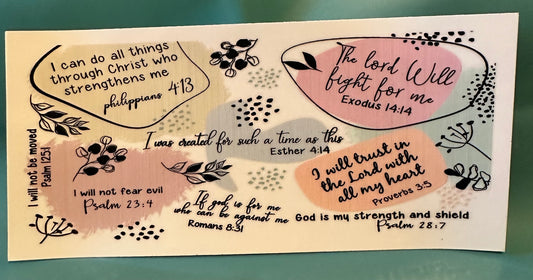 I can do all things
through Christ who
strengthens me
philippians 4:13
The lord Will
fight for me
Exodus 14:14
I will not be moved
Psalm 125:1
I was created for such a time as this
Esther 4:14
I will trust in
the Lord with
all my heart
Proverbs 3:5
I will not fear evil
Psalm 23:4
If god is for me
who can be against me
Romans 8:31
God is my strength and shield
Psalm 28:7